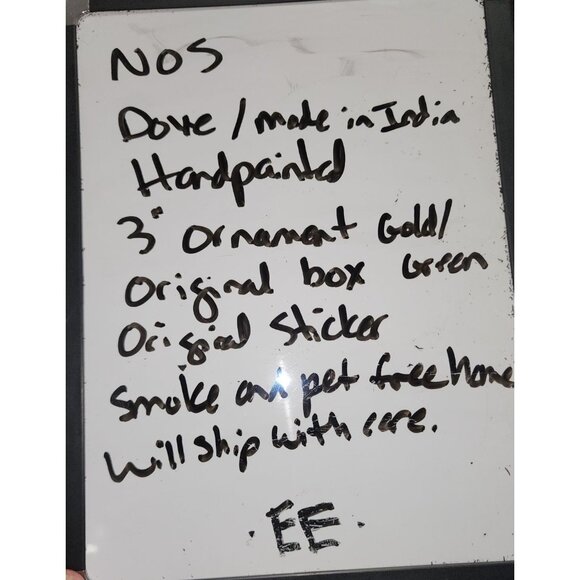 NOS
Dove / made in India
Handpainted
3" Ornament Gold/
Original box Green
Original Sticker
Smoke and pet free home
Will ship with care.
· EE ·